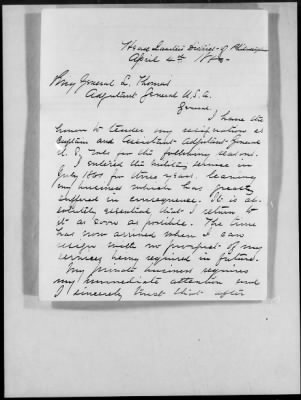 Head Quarters District of
April 4th
Brig General L. Thomas
Adjutant General U.S.A.
General
I have the
honor to tender my resignation as
Captain and Assistant Adjutant General
for the following reasons.
I entered the military service in
July 1861 for three years, leaving
my business which has greatly
suffered in consequence. It is ab-
solutely essential that I return to
it as soon as possible. The time
has now arrived when I can
resign with no prospect of my
services being required in future.
My private business requires
my immediate attention and
I sincerely trust that after